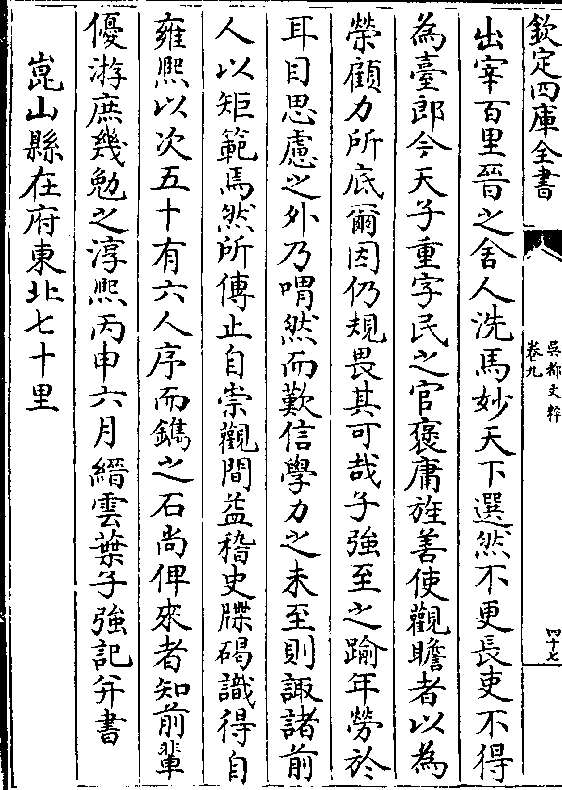 欽定四庫全書
吳都文粹
卷九
四十七
出宰百里晉之舍人洗馬妙天下選然不更長吏不得
為臺郎今天子重字民之官褒庸旌善使觀瞻者以為
榮顧力所底爾因仍規畏其可哉子強至之踰年勞於
耳目思慮之外乃喟然而歎信學力之未至則諏諸前
人以矩範焉然所傳止自崇觀間益稽史牒碣識得自
雍熙以次五十有六人序而鐫之石尚俾來者知前輩
優游庶幾勉之淳熙丙申六月縉雲葉子強記并書
崑山縣在府東北七十里